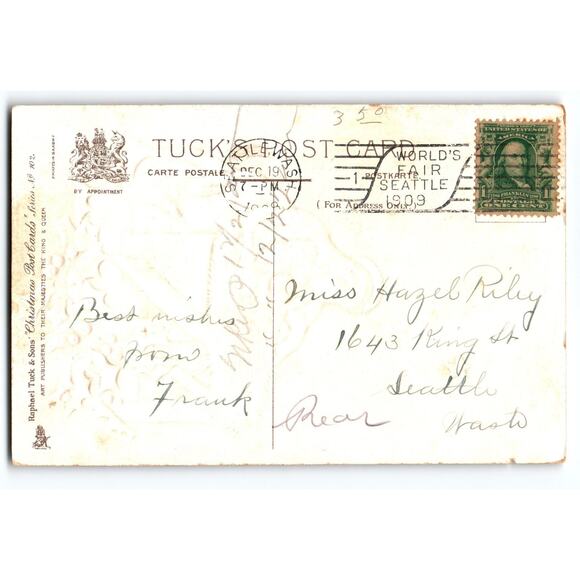 3 50
TUCK'S POST CARD
CARTE POSTALE
POSTKARTE
( FOR ADDRESS ONLY.)
BY APPOINTMENT
SEATTLE, WASH.
DEC 19
7-PM
1908
1
WORLD'S
FAIR
SEATTLE
1909
UNITED STATES OF
AMERICA
FRANKLIN
POSTAGE
ONE CENT
Raphael Tuck & Sons' "Christmas Post Cards" Series No 102.
ART PUBLISHERS TO THEIR MAJESTIES THE KING & QUEEN
Best wishes
from
Frank
Miss Hazel Riley
1643 King St
Seattle
Wash
Rear